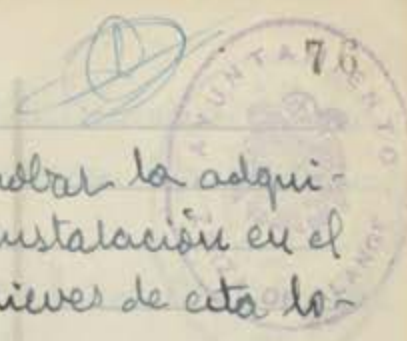 76
AYUNTAMIENTO
la adqui-
instalación en el
nieves de esta lo-